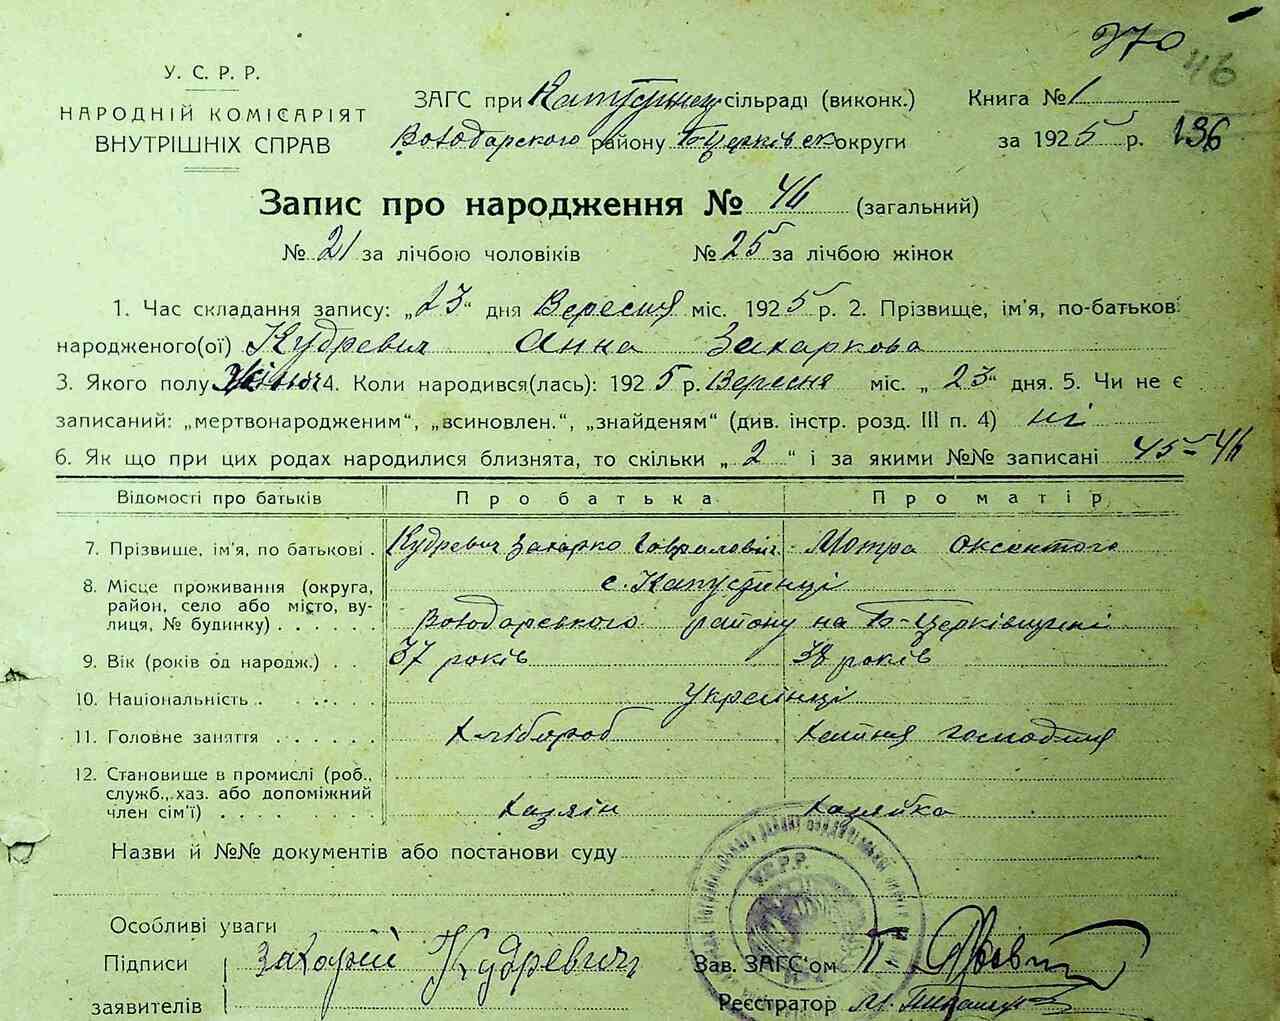 370
46
У. С. Р. Р.
НАРОДНІЙ КОМІСАРІЯТ
ВНУТРІШНІХ СПРАВ
ЗАГС при Капустинец. сільраді (виконк.) Книга № 1
Володарского району Б Церківск округи за 1925 р. 136
Запис про народження № 46 (загальний)
№ 21 за лічбою чоловіків № 25 за лічбою жінок
1. Час складання запису: „23“ дня Вересня міс. 1925 р. 2. Прізвище, ім'я, по-батькові
народженого(ої) Кудревич Анна Захаркова
3. Якого полу жіноч 4. Коли народився(лась): 1925 р. Вересня міс. „23“ дня. 5. Чи не є
записаний: „мертвонародженим“, „всиновлен.“, „знайденям“ (див. інстр. розд. III п. 4) ні
6. Як що при цих родах народилися близнята, то скільки „2“ і за якими №№ записані 45-46
Відомості про батьків Про батька Про матір
7. Прізвище, ім'я, по батькові . Кудревич Захарко Гаврилович Мотра Оксентова
8. Місце проживання (округа, с. Капустинці
район, село або місто, ву-
лиця, № будинку) . . . . . . Володарського району на Б-Церківщині
9. Вік (років од народж.) . . 37 років 38 років
10. Національність . . . . . . Українці
11. Головне заняття . . . . . Хлібороб Хатня господиня
12. Становище в промислі (роб.,
служб., хаз. або допоміжний
член сім'ї) . . . . . . . . Хазяін Хазяйка
Назви й №№ документів або постанови суду
Особливі уваги
У.С.Р.Р.
Підписи Захарій Кудревич Зав. ЗАГС'ом
заявителів Реєстратор